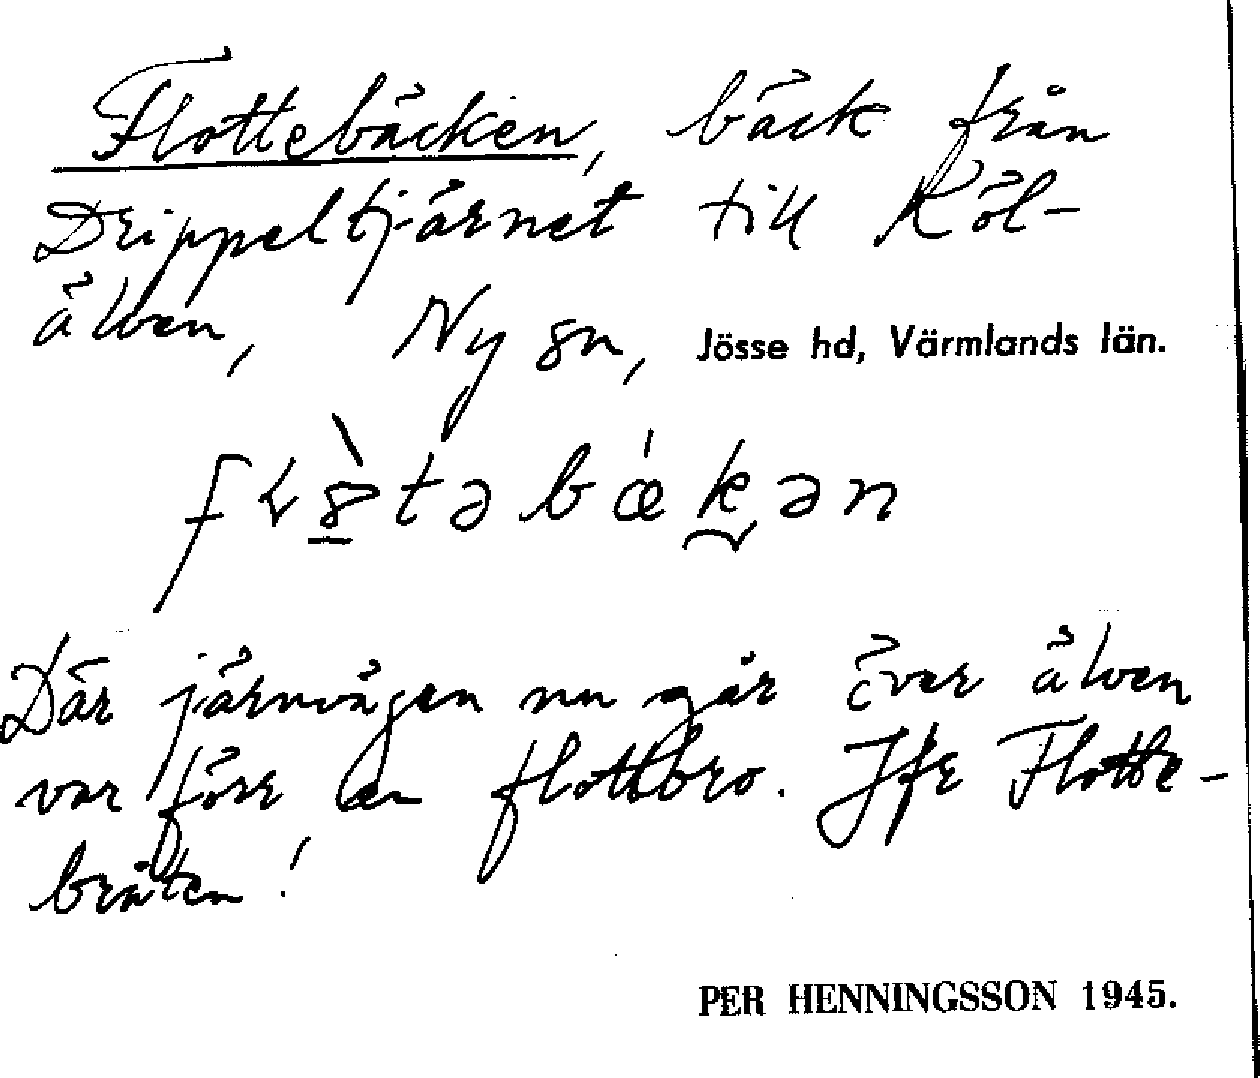 Flottebäcken, bäck från
Drippeltjärnet till Köl-
älven, Ny sn, Jösse hd, Värmlands län.
Där järnvägen nu går över älven
var förr en flottbro. Jfr Flotte-
bråten!
PER HENNINGSSON 1945.